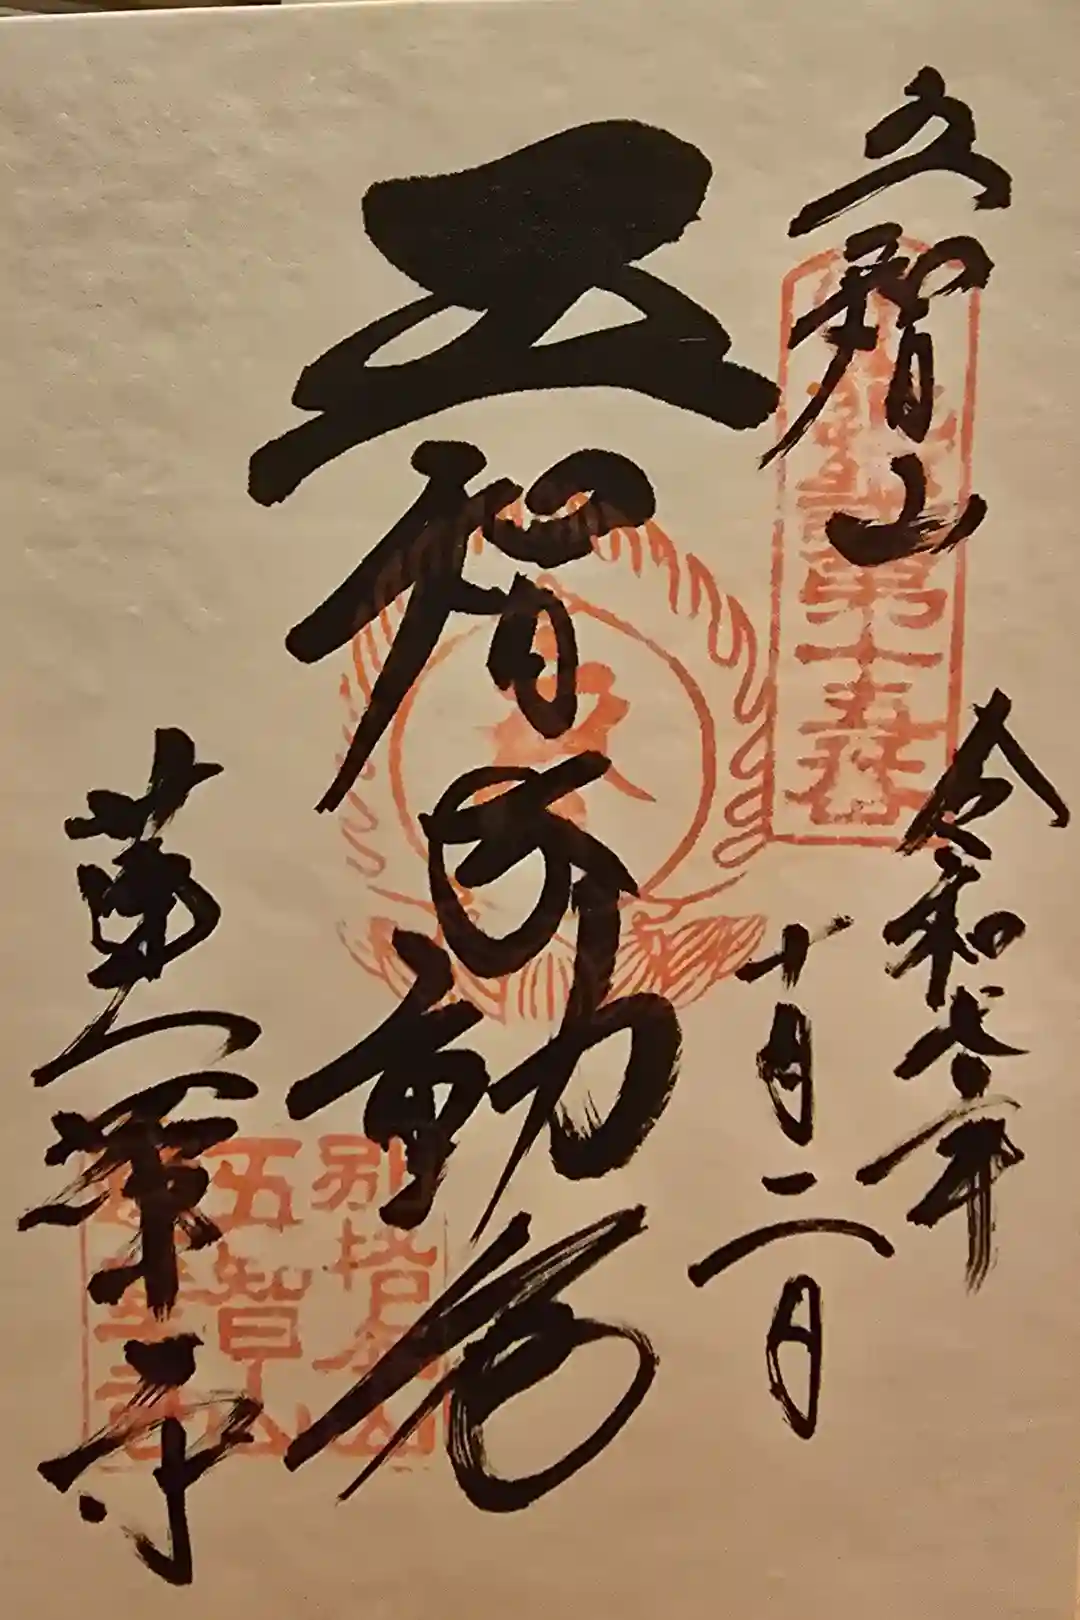 五智山
第十五番
令和七年
十月二日
五智不動尊
蓮華寺
別格本山
五智山